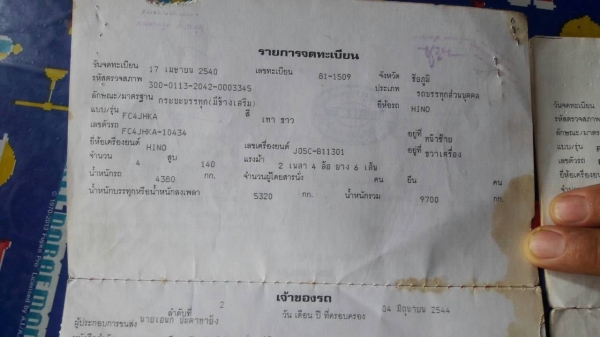 รายการจดทะเบียน
วันจดทะเบียน 17 เมษายน 2540 เลขทะเบียน 81-1509 จังหวัด ชัยภูมิ
รหัสตรวจสภาพ 300-0113-2042-0003345 ประเภท รถบรรทุกส่วนบุคคล
ลักษณะ/มาตรฐาน กระบะบรรทุก(มีข้างเสริม) ยี่ห้อรถ HINO
แบบ/รุ่น FC4JHKA สี เทา ขาว
เลขตัวรถ FC4JHKA-10434 อยู่ที่ หน้าซ้าย
ยี่ห้อเครื่องยนต์ HINO เลขเครื่องยนต์ J05C-B11301 อยู่ที่ ขวาเครื่อง
จำนวน 4 สูบ 140 แรงม้า 2 เพลา 4 ล้อ ยาง 6 เส้น
น้ำหนักรถ 4380 กก. จำนวนผู้โดยสารนั่ง คน ยืน คน
น้ำหนักบรรทุกหรือน้ำหนักลงเพลา 5320 กก. น้ำหนักรวม 9700 กก.
เจ้าของรถ
ลำดับที่ 2 วัน เดือน ปี ที่ครอบครอง 04 มิถุนายน 2544
ผู้ประกอบการขนส่ง
วันจดทะเบียน
รหัสตรวจสภาพ
ลักษณะ/มาตรฐาน
แบบ/รุ่น
เลขตัวรถ
ยี่ห้อเครื่องยนต์
จำนวน
น้ำหนักรถ